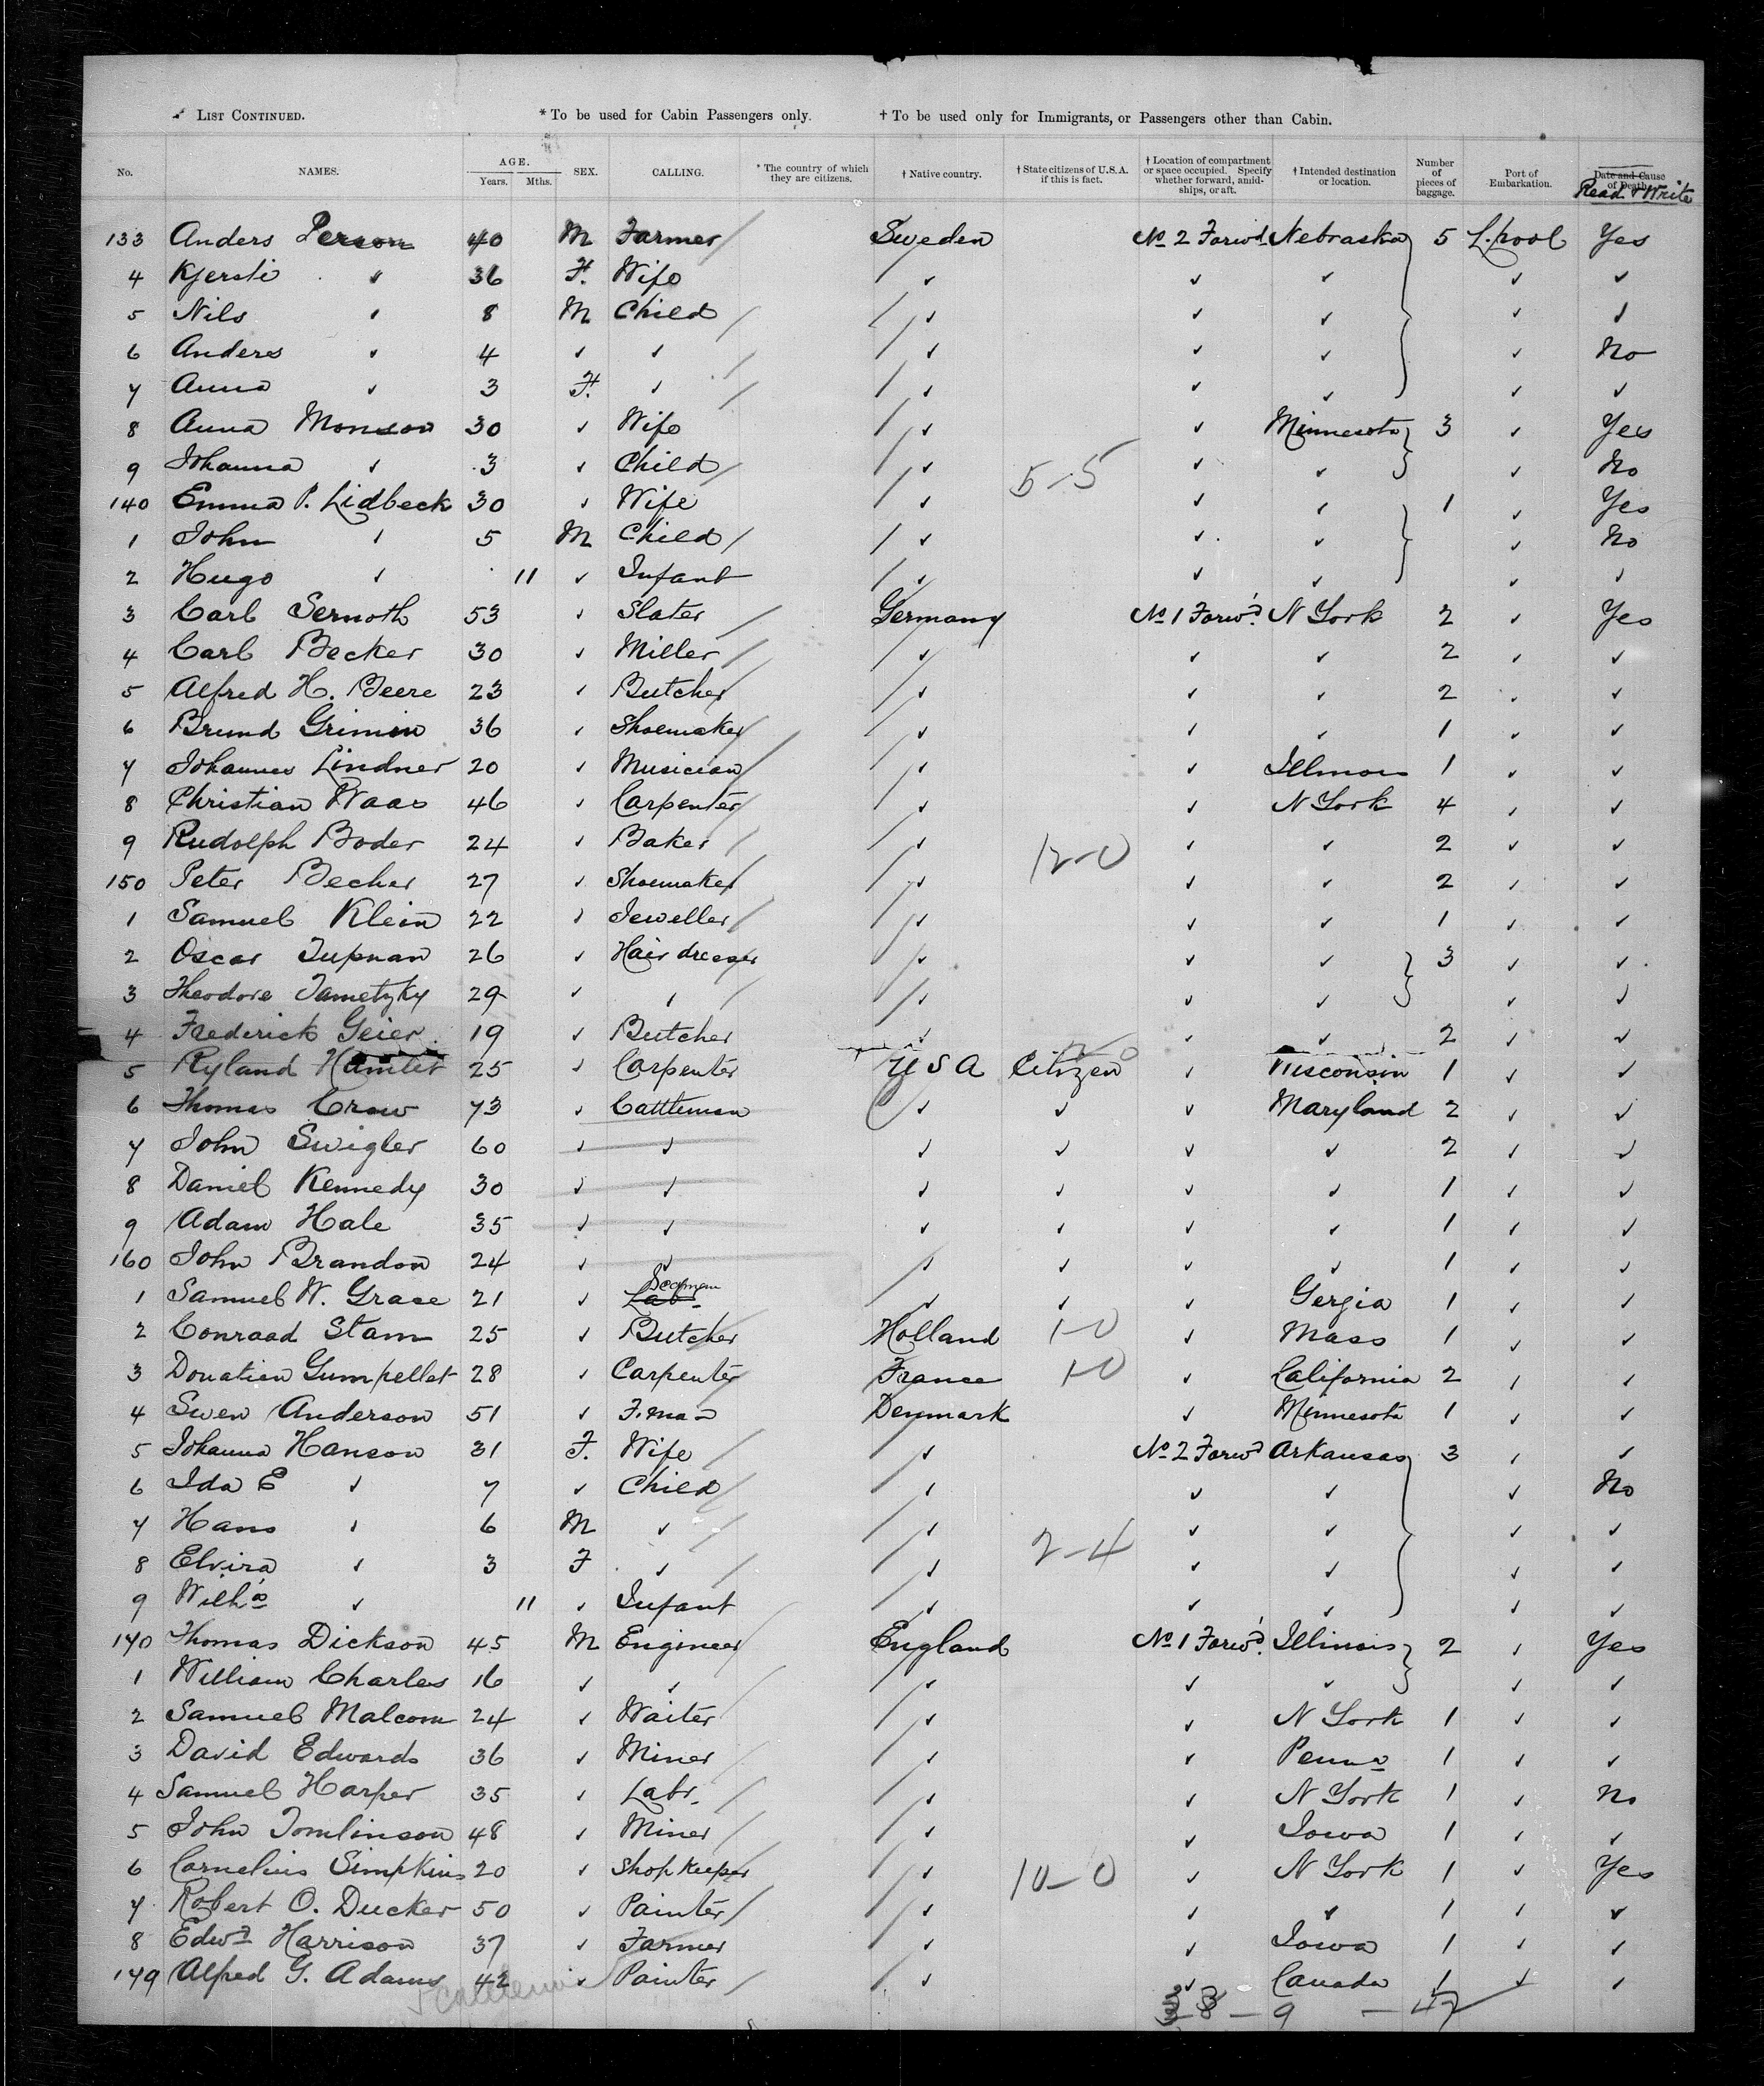 LIST CONTINUED. * To be used for Cabin Passengers only. † To be used only for Immigrants, or Passengers other than Cabin.
No. NAMES. AGE. Years. Mths. SEX. CALLING. * The country of which they are citizens. † Native country. † State citizens of U.S.A. if this is fact. † Location of compartment or space occupied. Specify whether forward, amidships, or aft. † Intended destination or location. Number of pieces of baggage. Port of Embarkation. Date and Cause of Death. Read & Write
133 Anders Person 40 M Farmer Sweden No 2 Forwd Nebraska 5 L.pool Yes
4 Kjersti " 36 F. Wife " " " " "
5 Nils " 8 M Child " " " " "
6 Anders " 4 " " " " " " No
7 Anna " 3 F. " " " " " "
8 Anna Monson 30 " Wife " " Minnesota 3 " Yes
9 Johanna " 3 " Child " 5-5 " " " No
140 Emma P. Lidbeck 30 " Wife " " " 1 " Yes
1 John " 5 M Child " " " " No
2 Hugo " 11 " Infant " " " " "
3 Carl Sernoth 53 " Slater Germany No 1 Forwd. N York 2 " Yes
4 Carl Becker 30 " Miller " " " 2 " "
5 Alfred H. Beere 23 " Butcher " " " 2 " "
6 Brund Grimin 36 " Shoemaker " " " 1 " "
7 Johannes Lindner 20 " Musician " " Illinois 1 " "
8 Christian Waas 46 " Carpenter " " N York 4 " "
9 Rudolph Boder 24 " Baker " 12-0 " " 2 " "
150 Peter Becher 27 " Shoemaker " " " 2 " "
1 Samuel Klein 22 " Jeweller " " " 1 " "
2 Oscar Tupman 26 " Hair dresser " " " 3 " "
3 Theodore Tametzky 29 " " " " " " "
4 Frederick Geier 19 " Butcher " " " 2 " "
5 Ryland Hamlet 25 " Carpenter U S A Citizen " Wisconsin 1 " "
6 Thomas Crow 73 " Cattleman " " " Maryland 2 " "
7 John Swigler 60 " " " " " " 2 " "
8 Daniel Kennedy 30 " " " " " " 1 " "
9 Adam Hale 35 " " " " " " 1 " "
160 John Brandon 24 " " " " " " 1 " "
1 Samuel W. Grace 21 " Labr Seaman " " " Gergia 1 " "
2 Conraad Stam 25 " Butcher Holland 1-0 " Mass 1 " "
3 Donatien Gumpellet 28 " Carpenter France 1-0 " California 2 " "
4 Swen Anderson 51 " F.man Denmark " Minnesota 1 " "
5 Johanna Hanson 31 F. Wife " No 2 Forwd Arkansas 3 " "
6 Ida E " 7 " Child " " " " No
7 Hans " 6 M " " " " " "
8 Elvira " 3 F " " 2-4 " " " "
9 Wilha " 11 " Infant " " " " "
170 Thomas Dickson 45 M Engineer England No 1 Forwd. Illinois 2 " Yes
1 William Charles 16 " " " " " " "
2 Samuel Malcom 24 " Waiter " " N York 1 " "
3 David Edwards 36 " Miner " " Penna 1 " "
4 Samuel Harper 35 " Labr. " " N York 1 " No
5 John Tomlinson 48 " Miner " " Iowa 1 " "
6 Cornelius Simpkins 20 " Shop Keeper " 10-0 " N York 1 " Yes
7 Robert O. Ducker 50 " Painter " " " 1 " "
8 Edwd Harrison 37 " Farmer " " Iowa 1 " "
179 Alfred G. Adams 42 " Painter " " Canada 1 " "
38 - 9 - 47